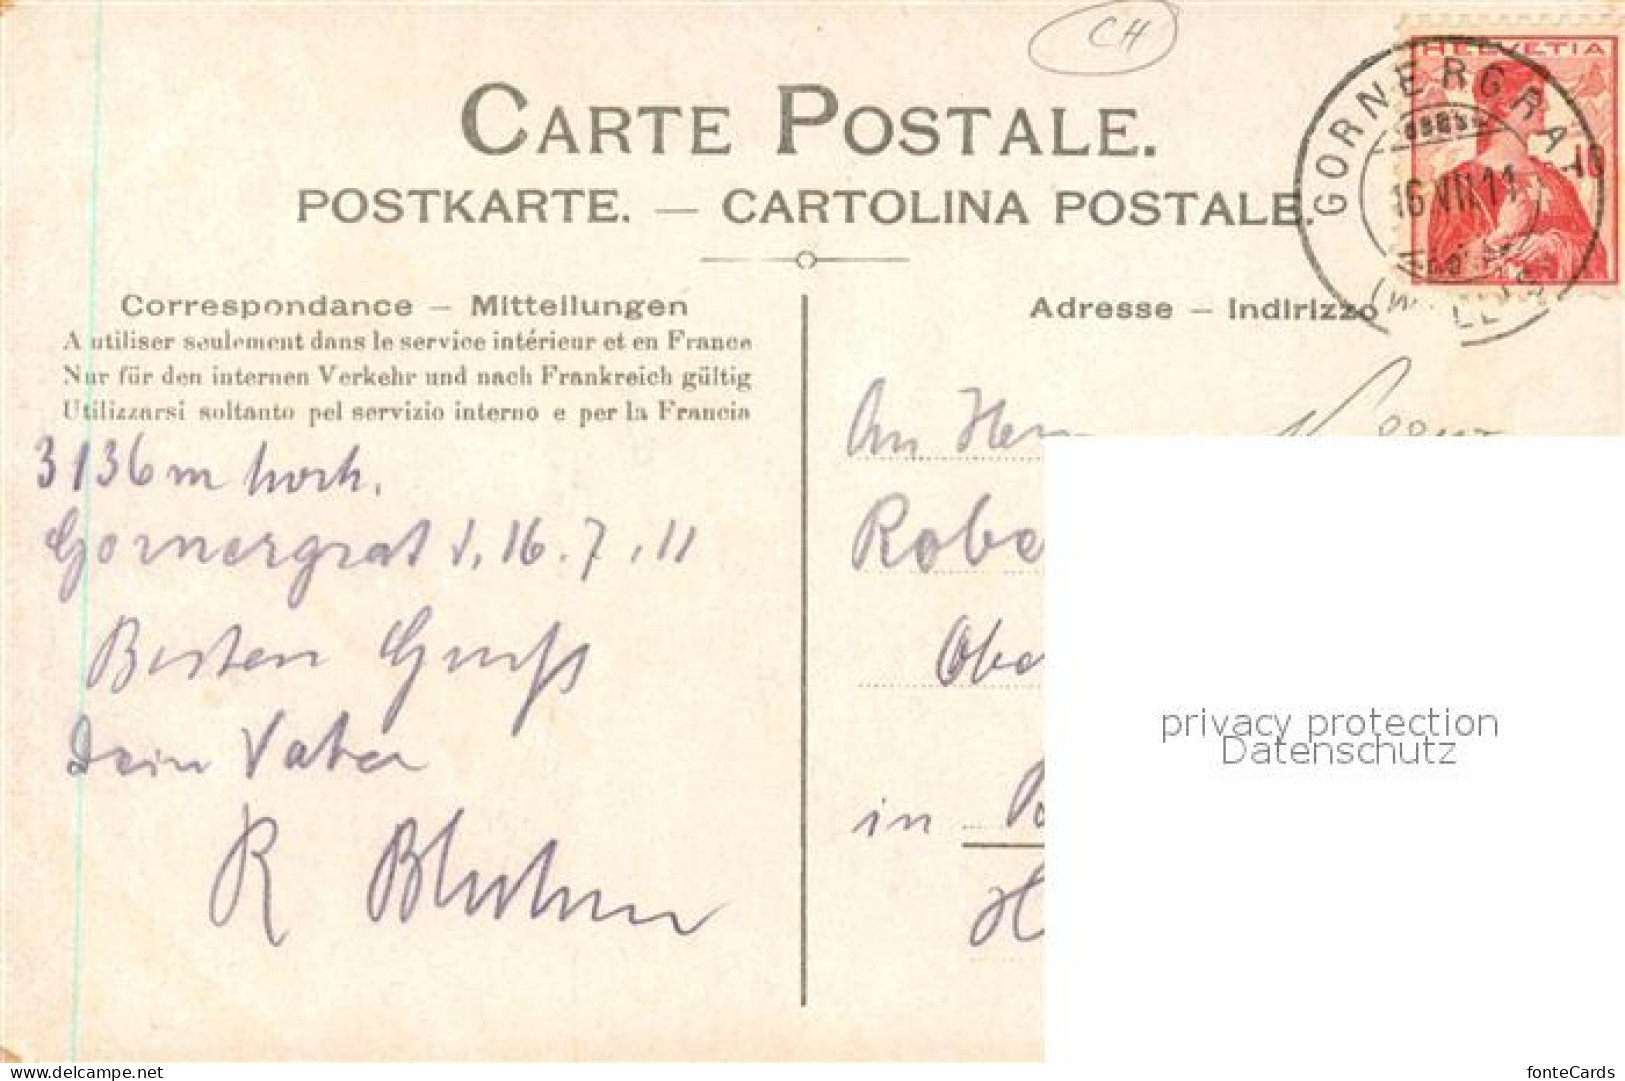 CH
CARTE POSTALE.
POSTKARTE. — CARTOLINA POSTALE.
HELVETIA
10
GORNERGRAT
16.VII.11
Correspondance — Mitteilungen
A utiliser seulement dans le service intérieur et en France
Nur für den internen Verkehr und nach Frankreich gültig
Utilizzarsi soltanto pel servizio interno e per la Francia
3136 m hoch.
Gornergrat d. 16.7.11
Besten Gruß
Dein Vater
R Bluhm
Adresse — Indirizzo
An Herrn
Robe
Obe
in
H
privacy protection
Datenschutz
www.delcampe.net
fonteCards